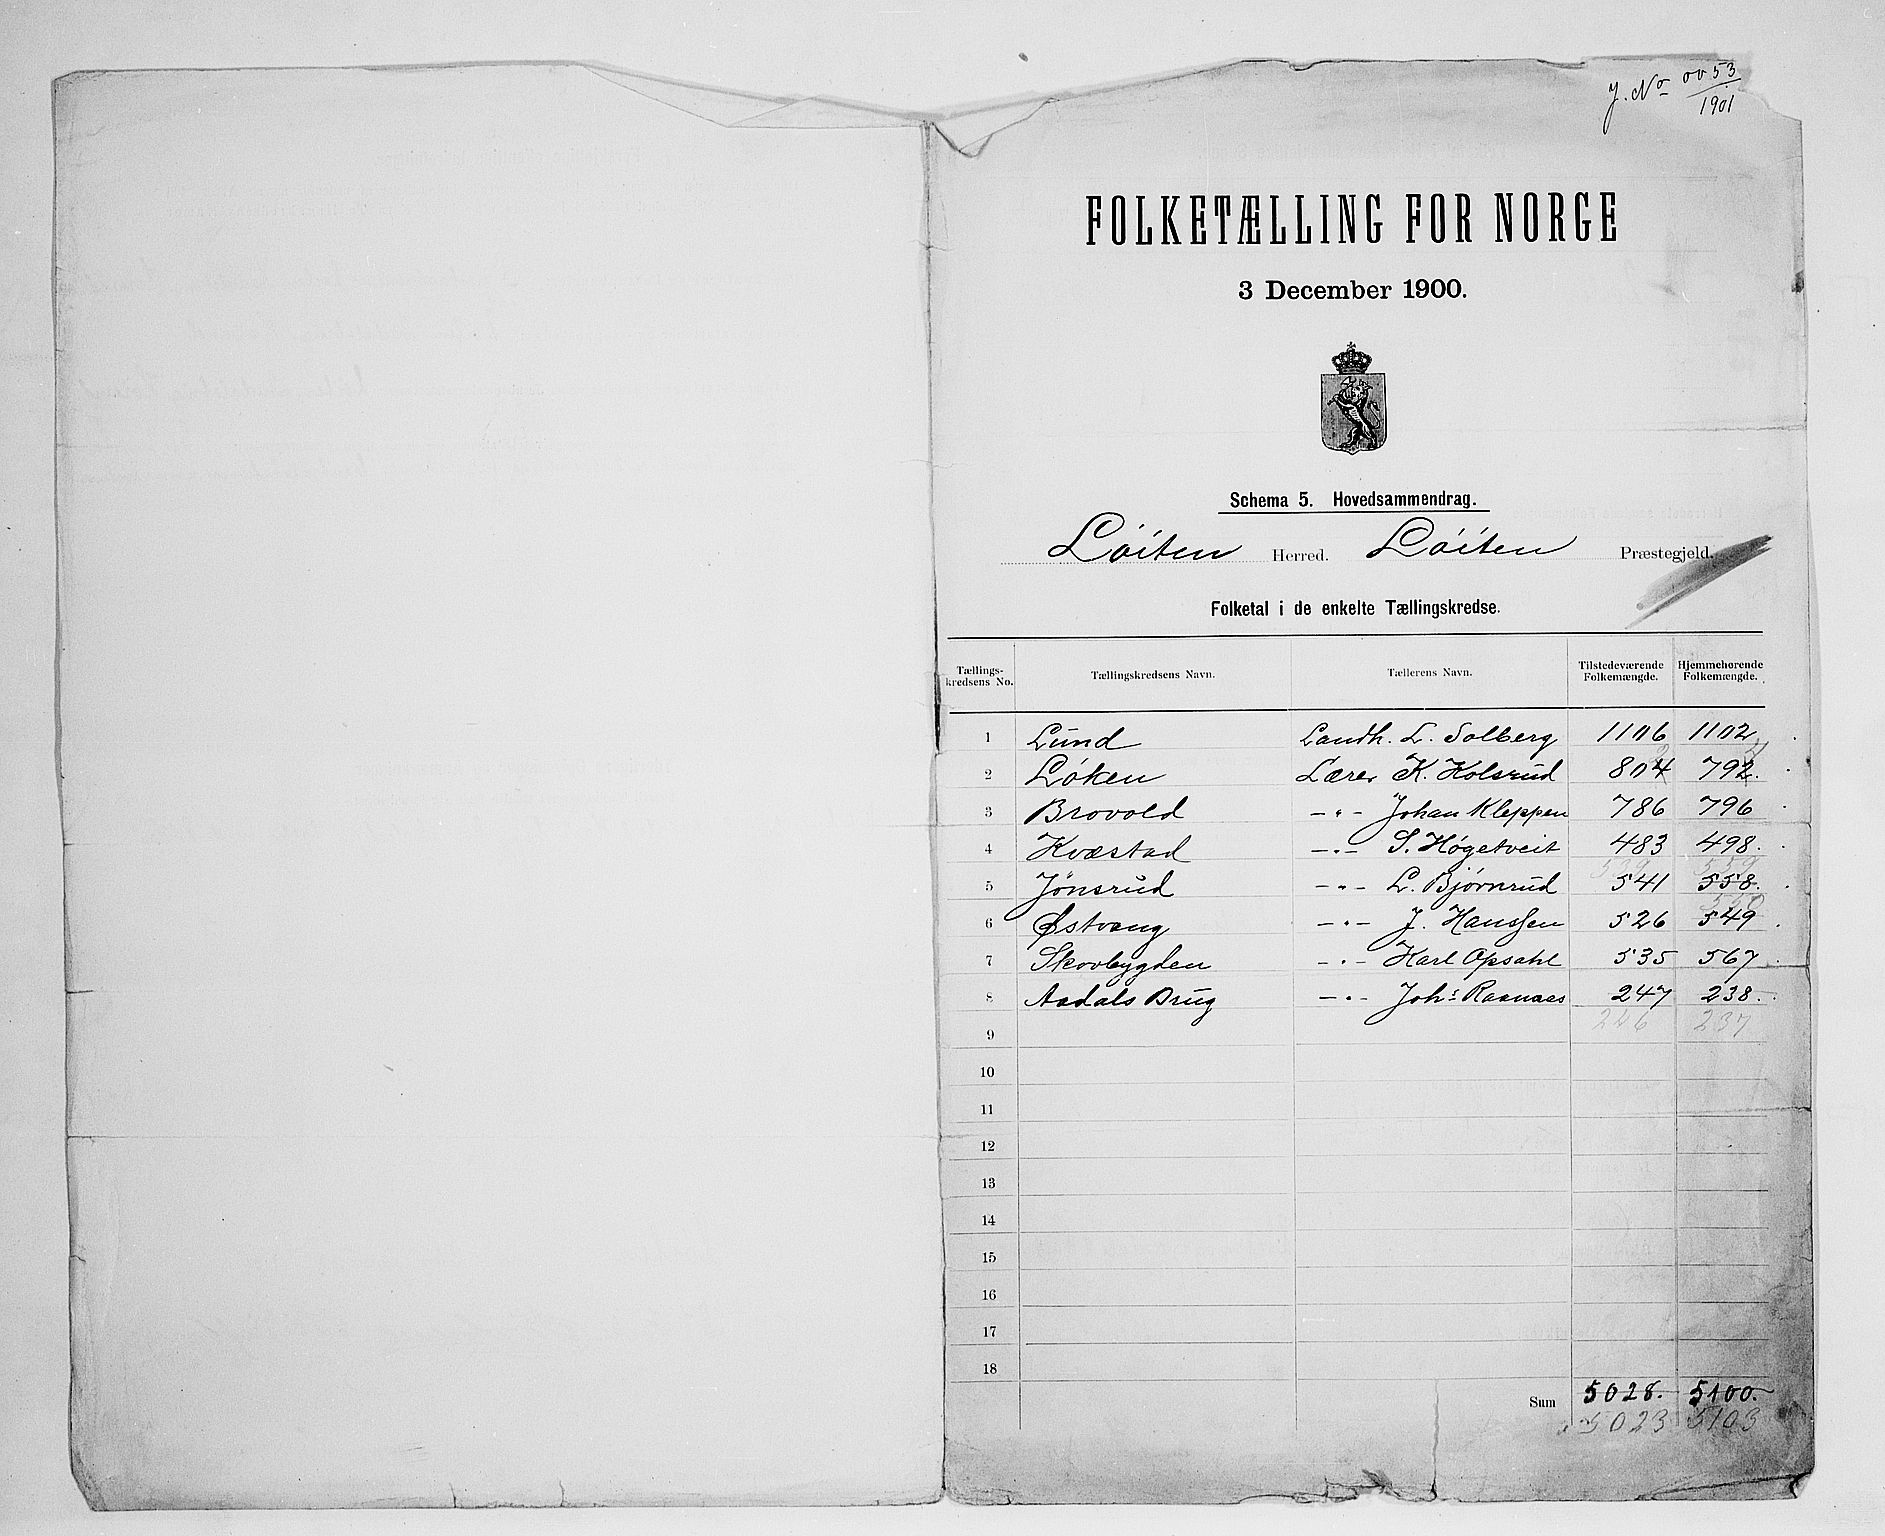 J. No 0053
1901
FOLKETÆLLING FOR NORGE
3 December 1900.
Schema 5. Hovedsammendrag.
Löiten Herred. Löiten Præstegjeld.
Folketal i de enkelte Tællingskredse.
Tællings-kredsens No. Tællingskredsens Navn. Tællerens Navn. Tilstedeværende Folkemængde. Hjemmehørende Folkemængde.
1 Lund Landh. L. Solberg 1106 1102
2 Løken Lærer K. Kolsrud 804 792.
3 Brovold –"– Johan Kleppen 786 796
4 Kvæstad –"– S. Høgetveit 483 498.
539 559
5 Jönsrud –"– L. Bjørnrud 541 558.
550
6 Østvang –"– J. Hanssen 526 549
7 Skovbygden –"– Karl Opsahl 535 567
8 Aadals Brug –"– Johs Raanaas 247 238.
246 237
9
10
11
12
13
14
15
16
17
18
Sum 5028. 5100.
5023 5103